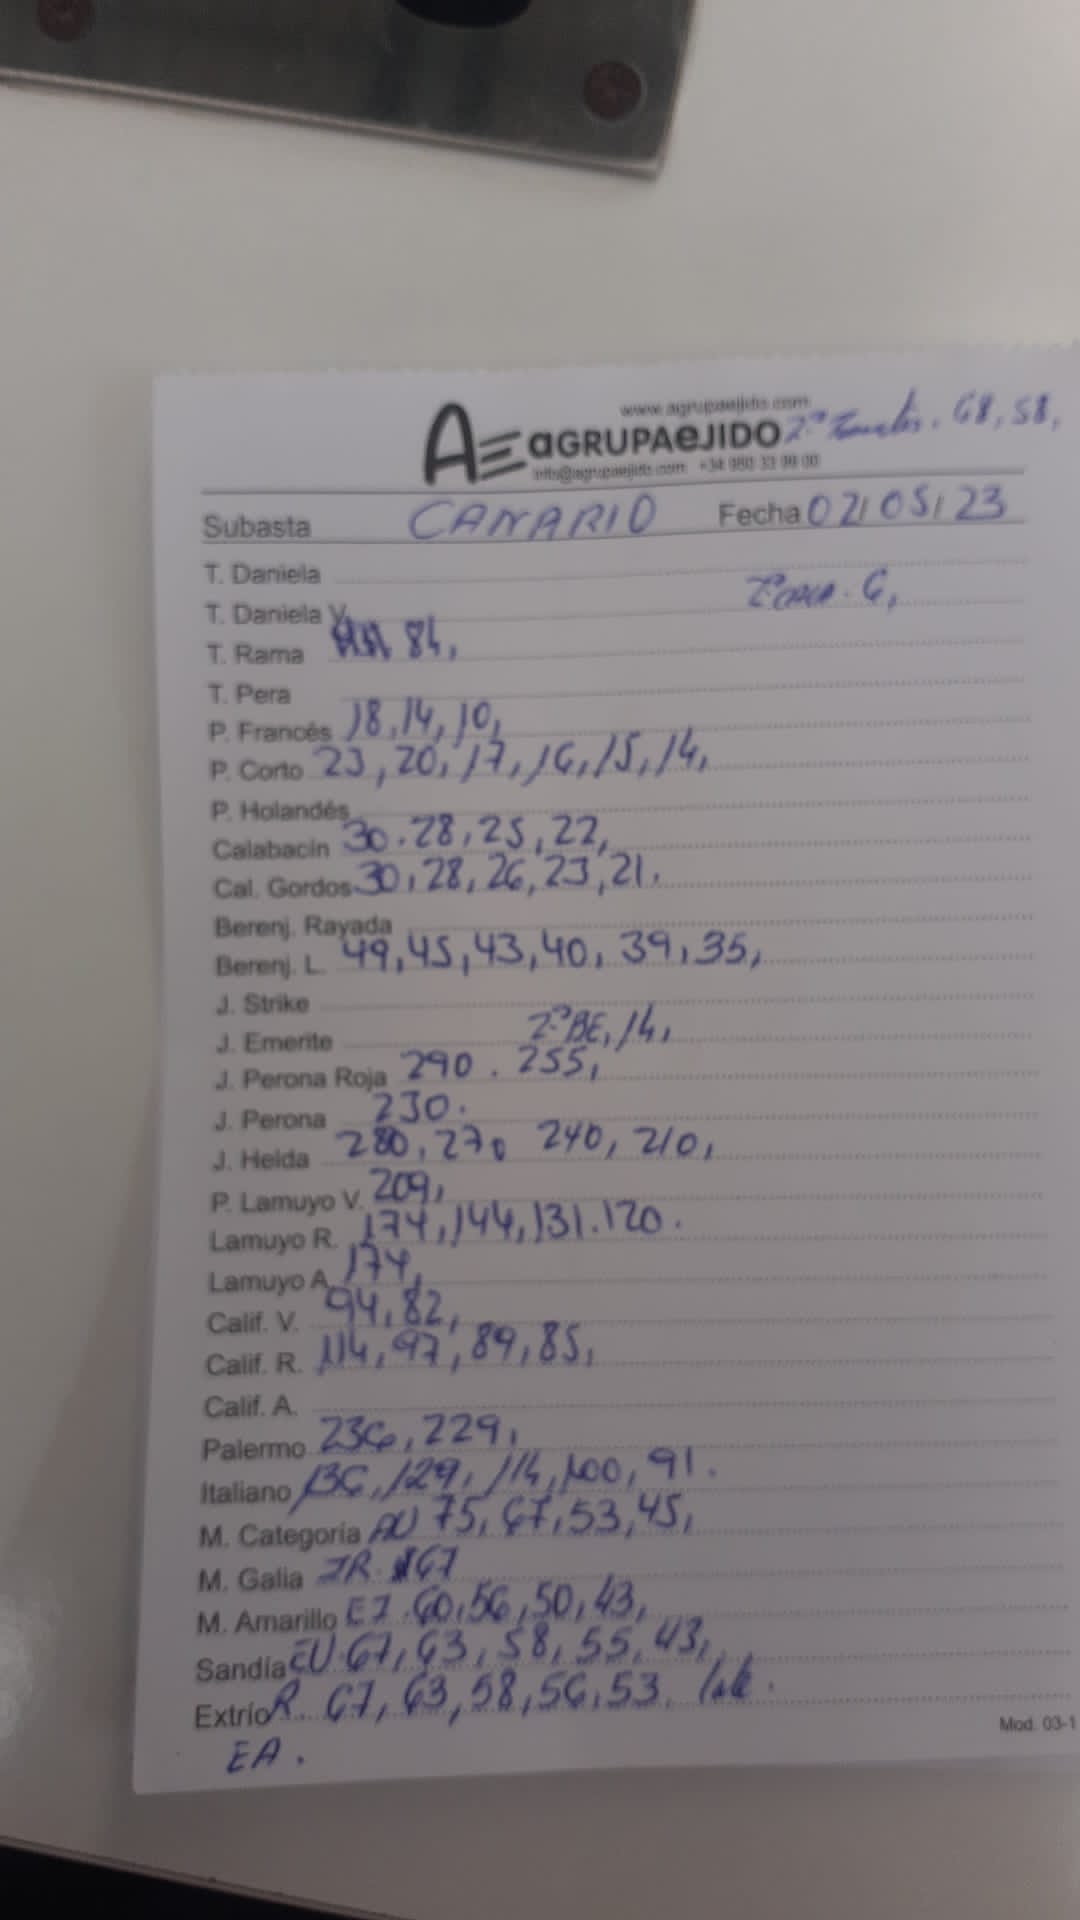 www.agrupaejido.com
AGRUPAEJIDO 2ª 68, 58,
info@agrupaejido.com +34 950 33 99 00
Subasta CANARIO Fecha 02/05/23
T. Daniela
T. Daniela V. 6,
T. Rama 84,
T. Pera
P. Francés 18, 14, 10,
P. Corto 23, 20, 17, 16, 15, 14,
P. Holandés
Calabacín 30. 28, 25, 22,
Cal. Gordos 30, 28, 26, 23, 21.
Berenj. Rayada
Berenj. L. 49, 45, 43, 40, 39, 35,
J. Strike
J. Emerite 2ª BE, 14,
J. Perona Roja 290. 255,
J. Perona 230.
J. Helda 280, 270 240, 210,
P. Lamuyo V. 209,
Lamuyo R. 174, 144, 131. 120.
Lamuyo A. 174,
Calif. V. 94, 82,
Calif. R. 114, 97, 89, 85,
Calif. A.
Palermo 236, 229,
Italiano 136, 129, 114, 100, 91.
M. Categoría AU 75, 67, 53, 45,
M. Galia IR. 67
M. Amarillo E7. 60, 56, 50, 43,
Sandía EU. 67, 63, 58, 55, 43,
Extrío R. 67, 63, 58, 56, 53.
EA.
Mod. 03-1